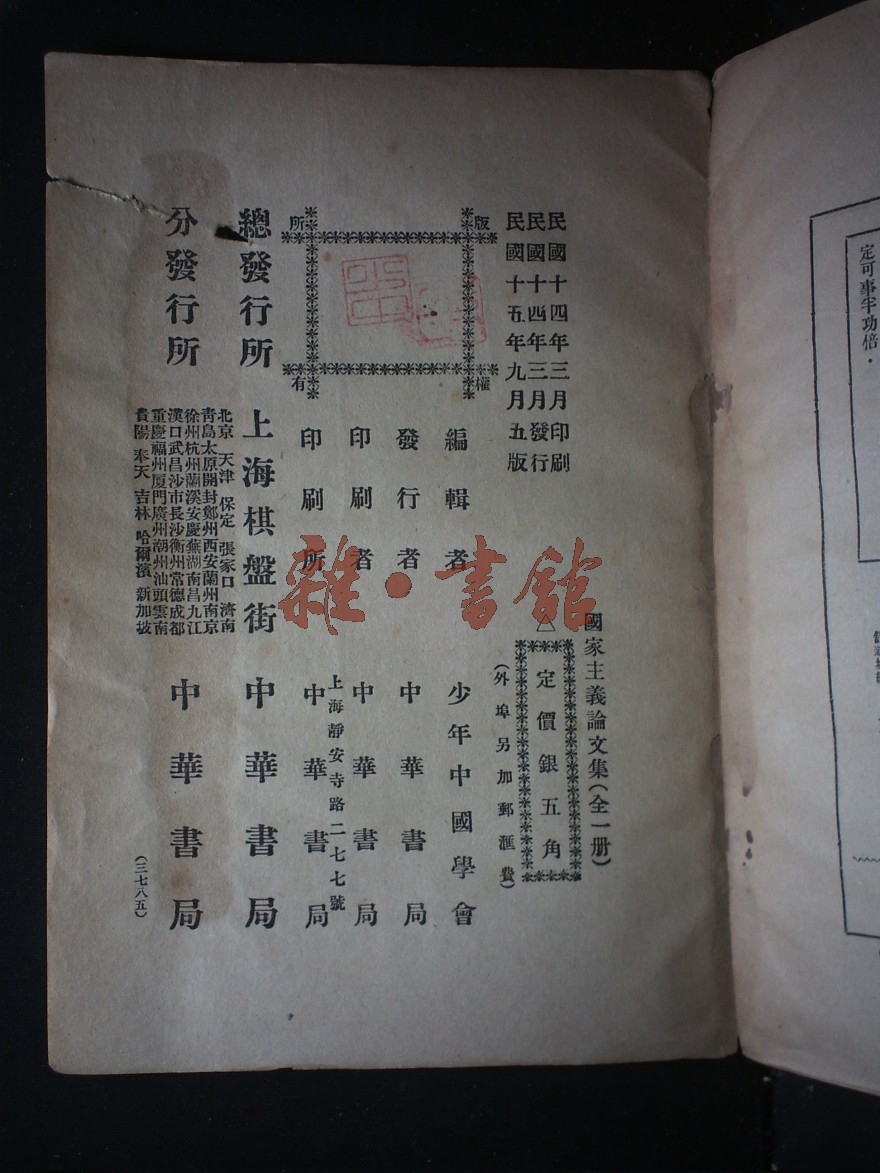 民國十四年三月印刷
民國十四年三月發行
民國十五年九月五版
國家主義論文集(全一册)
△定價銀五角
(外埠另加郵滙費)
版權所有
編輯者 少年中國學會
發行者 中華書局
印刷者 中華書局
上海靜安寺路二七七號
印刷所 中華書局
總發行所 上海棋盤街 中華書局
分發行所 中華書局
北京 天津 保定 張家口 濟南
青島太原開封鄭州西安蘭州南京
徐州杭州蘭溪安慶蕪湖南昌九江
漢口武昌沙市長沙衡州常德成都
重慶福州厦門廣州潮州汕頭雲南
貴陽 奉天 吉林 哈爾濱 新加坡
(三七八五)
雜·書館
定可事半功倍．